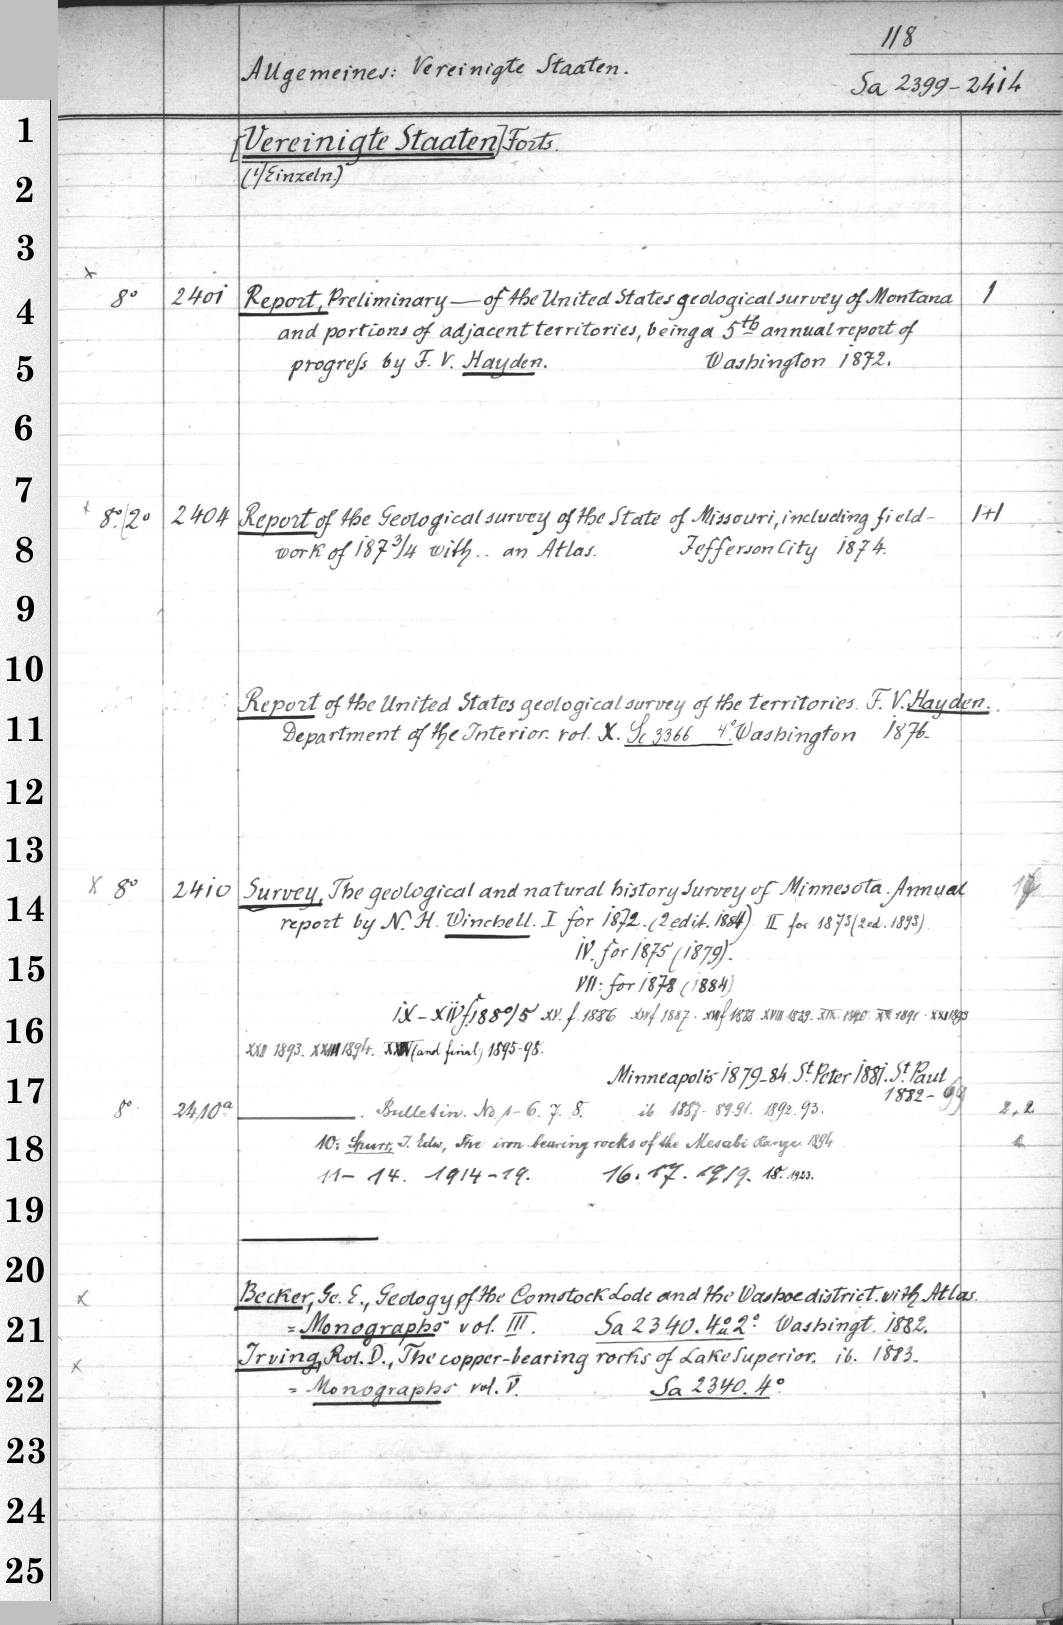 118
Allgemeines: Vereinigte Staaten.
Sa 2399-2414
1
[Vereinigte Staaten] Forts.
(1/Einzeln.)
2
3
x
8° 2401 Report, Preliminary — of the United States geological survey of Montana 1
4
and portions of adjacent territories, being a 5th annual report of
5
progress by F. V. Hayden. Washington 1872.
6
7
x 8°/2° 2404 Report of the Geological survey of the State of Missouri, including field- 1+1
8
work of 1873/4 with.. an Atlas. Jefferson City 1874.
9
10
Report of the United States geological survey of the territories. F. V. Hayden.
11
Department of the Interior. vol. X. Sc 3366 4° Washington 1876.
12
13
x 8° 2410 Survey, The geological and natural history Survey of Minnesota. Annual
14
report by N. H. Winchell. I for 1872. (2 edit. 1884) II for 1873 (2 ed. 1893)
IV. for 1875 (1879).
15
VII: for 1878 (1884)
IX-XIV f. 1880/5 XV. f. 1886 XVI f 1887. XVII f 1888 XVIII 1889. XIX 1890. XX 1891. XXI 1893
16
XXII 1893. XXIII 1894. XXIV (and final) 1895-98.
Minneapolis 1879-84. St. Peter 1881. St. Paul
17
1882-99
8° 2410a ——— . Bulletin. No 1-6. 7. 8. ib 1887-89.91. 1892.93. 2, 2
18
10: Spurr, J. Edw, The iron bearing rocks of the Mesabi Range 1894
11-14. 1914-19. 16. 17. 1919. 18. 1923.
19
20
x Becker, Ge. E., Geology of the Comstock Lode and the Washoe district. with Atlas.
21
= Monographs vol. III. Sa 2340. 4° u 2° Washingt. 1882.
x Irving, Rol. D., The copper-bearing rocks of Lake Superior. ib. 1883.
22
= Monographs vol. V. Sa 2340. 4°
23
24
25